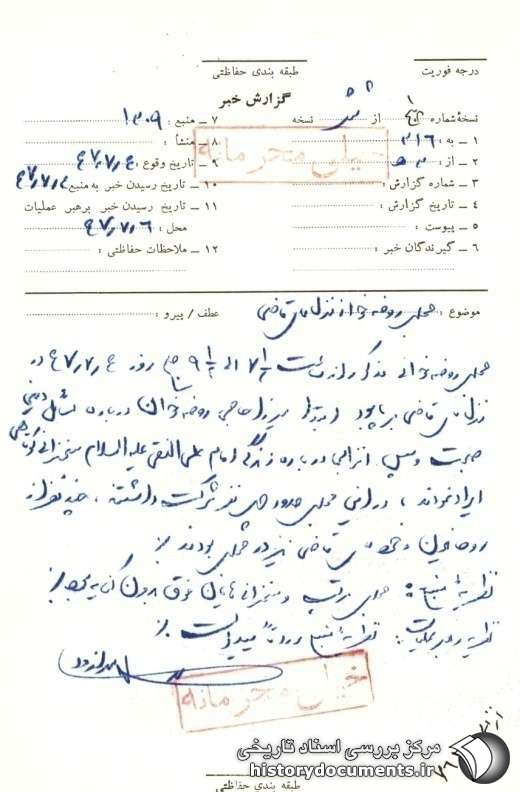 درجه فوریت
طبقه بندی حفاظتی
گزارش خبر
نسخهٔ شماره ۱ از نسخه
۱ ـ به: ۳۱۶
۲ ـ از: ۵ ه‍ ۳
۳ ـ شماره گزارش:
۴ ـ تاریخ گزارش:
۵ ـ پیوست:
۶ ـ گیرندگان خبر:
۷ ـ منبع: ۱۳۰۹
۸ ـ منشأ:
۹ ـ تاریخ وقوع: ۴۷/۷/۴
۱۰ ـ تاریخ رسیدن خبر به منبع: ۴۷/۷/۴
۱۱ ـ تاریخ رسیدن خبر برهبر عملیات
محل: ۴۷/۷/۶
۱۲ ـ ملاحظات حفاظتی:
خیلی محرمانه
موضوع: مجلس روضه‌خوانی منزل قاضی
عطف / پیرو:
مجلس روضه‌خوانی مذکور از ساعت ۷ ۱/۲ الی ۹ ۱/۲ صبح روز ۴۷/۷/۴ در
منزل قاضی برپا بود ابتدا میرزا حاجی روضه‌خوان درباره مسائل دینی
صحبت و سپس انزابی درباره زندگی امام علی النقی علیه السلام سخنرانی کوتاهی
ایراد نمودند، در این مجلس حدود سی نفر شرکت داشتند، چند نفر از
روحانیون و شخص قاضی نیز در مجلس بودند
نظریهٔ منبع: مجلس مرتب و سخنرانی‌های فوق بدون کنایه بود
نظریه رهبر عملیات: نظریهٔ منبع مورد تأیید است
خیلی محرمانه
مرکز بررسی اسناد تاریخی
historydocuments.ir
طبقه بندی حفاظتی